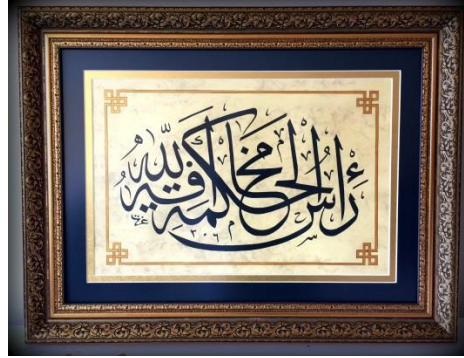 رَأْسُ الْحِكْمَةِ مَخَافَةُ اللّٰهِ